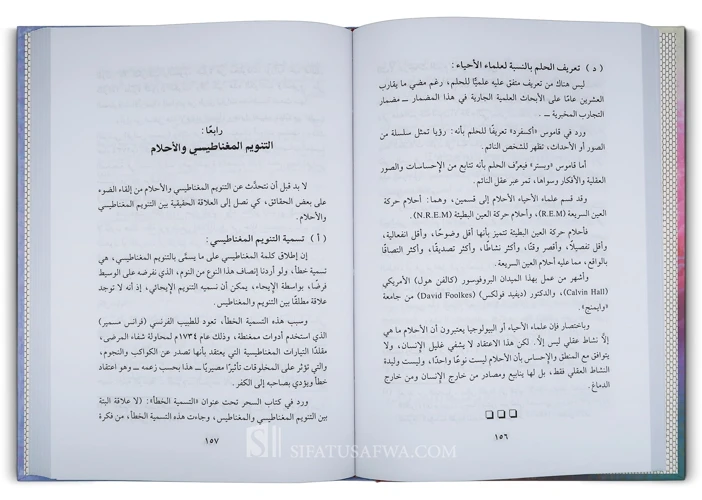 ( د ) تعريف الحلم بالنسبة لعلماء الأحياء :
ليس هناك من تعريف متفق عليه علميًّا للحلم، رغم مضي ما يقارب
العشرين عامًا على الأبحاث العلمية الجارية في هذا المضمار ــ مضمار
التجارب المخبرية ــ .
ورد في قاموس «أكسفرد» تعريفًا للحلم بأنه: رؤيا تمثل سلسلة من
الصور أو الأحداث، تظهر للشخص النائم.
أما قاموس «وبستر» فيعرِّف الحلم بأنه تتابع من الإحساسات والصور
العقلية والأفكار وسواها، تمر عبر عقل النائم.
وقد قسم علماء الأحياء الأحلام إلى قسمين، وهما: أحلام حركة
العين السريعة (R.E.M)، وأحلام حركة العين البطيئة (N.R.E.M).
فأحلام حركة العين البطيئة تتميز بأنها أقل وضوحًا، وأقل انفعالية،
وأقل تفصيلًا، وأقصر وقتًا، وأكثر نشاطًا، وأكثر تصديقًا، وأكثر التصاقًا
بالواقع، مما عليه أحلام العين السريعة.
وأشهر من عمل بهذا الميدان البروفوسور (كالفن هول) الأمريكي
(Calvin Hall)، والدكتور (ديفيد فولكس) (David Foolkes) من جامعة
«وايمنج».
وباختصار فإن علماء الأحياء أو البيولوجيا يعتبرون أن الأحلام ما هي
إلَّا نشاط عقلي ليس إلَّا. لكن هذا الاعتقاد لا يشفي غليل الإنسان، ولا
يتوافق مع المنطق والإحساس بأن الأحلام ليست نوعًا واحدًا، وليست وليدة
النشاط العقلي فقط، بل لها ينابيع ومصادر من خارج الإنسان ومن خارج
الدماغ.
١٥٦
رابعًا:
التنويم المغناطيسي والأحلام
لا بد قبل أن نتحدَّث عن التنويم المغناطيسي والأحلام من إلقاء الضوء
على بعض الحقائق، كي نصل إلى العلاقة الحقيقية بين التنويم المغناطيسي
والأحلام.
( أ ) تسمية التنويم المغناطيسي :
إن إطلاق كلمة المغناطيسي على ما يسمَّى بالتنويم المغناطيسي، هي
تسمية خطأ، ولو أردنا إنصاف هذا النوع من النوم، الذي نفرضه على الوسيط
فرضًا، بواسطة الإيحاء، يمكن أن نسميه التنويم الإيحائي، إذ أنه لا توجد
علاقة مطلقًا بين التنويم والمغناطيس.
وسبب هذه التسمية الخطأ، تعود للطبيب الفرنسي (فرانس مسمير)
الذي استخدم أدوات ممغنطة، وذلك عام ١٧٣٤م لمحاولة شفاء المرضى،
مقلدًا التيارات المغناطيسية التي يعتقد بأنها تصدر عن الكواكب والنجوم،
والتي تؤثر على المخلوقات تأثيرًا مصيريًّا ــ هذا بحسب زعمه ــ وهو اعتقاد
خطأ ويؤدي بصاحبه إلى الكفر.
ورد في كتاب السحر تحت عنوان «التسمية الخطأ»: (لا علاقة البتة
بين التنويم المغناطيسي والمغناطيس، وجاءت هذه التسمية الخطأ، من فكرة
١٥٧
SIFATUSAFWA.COM